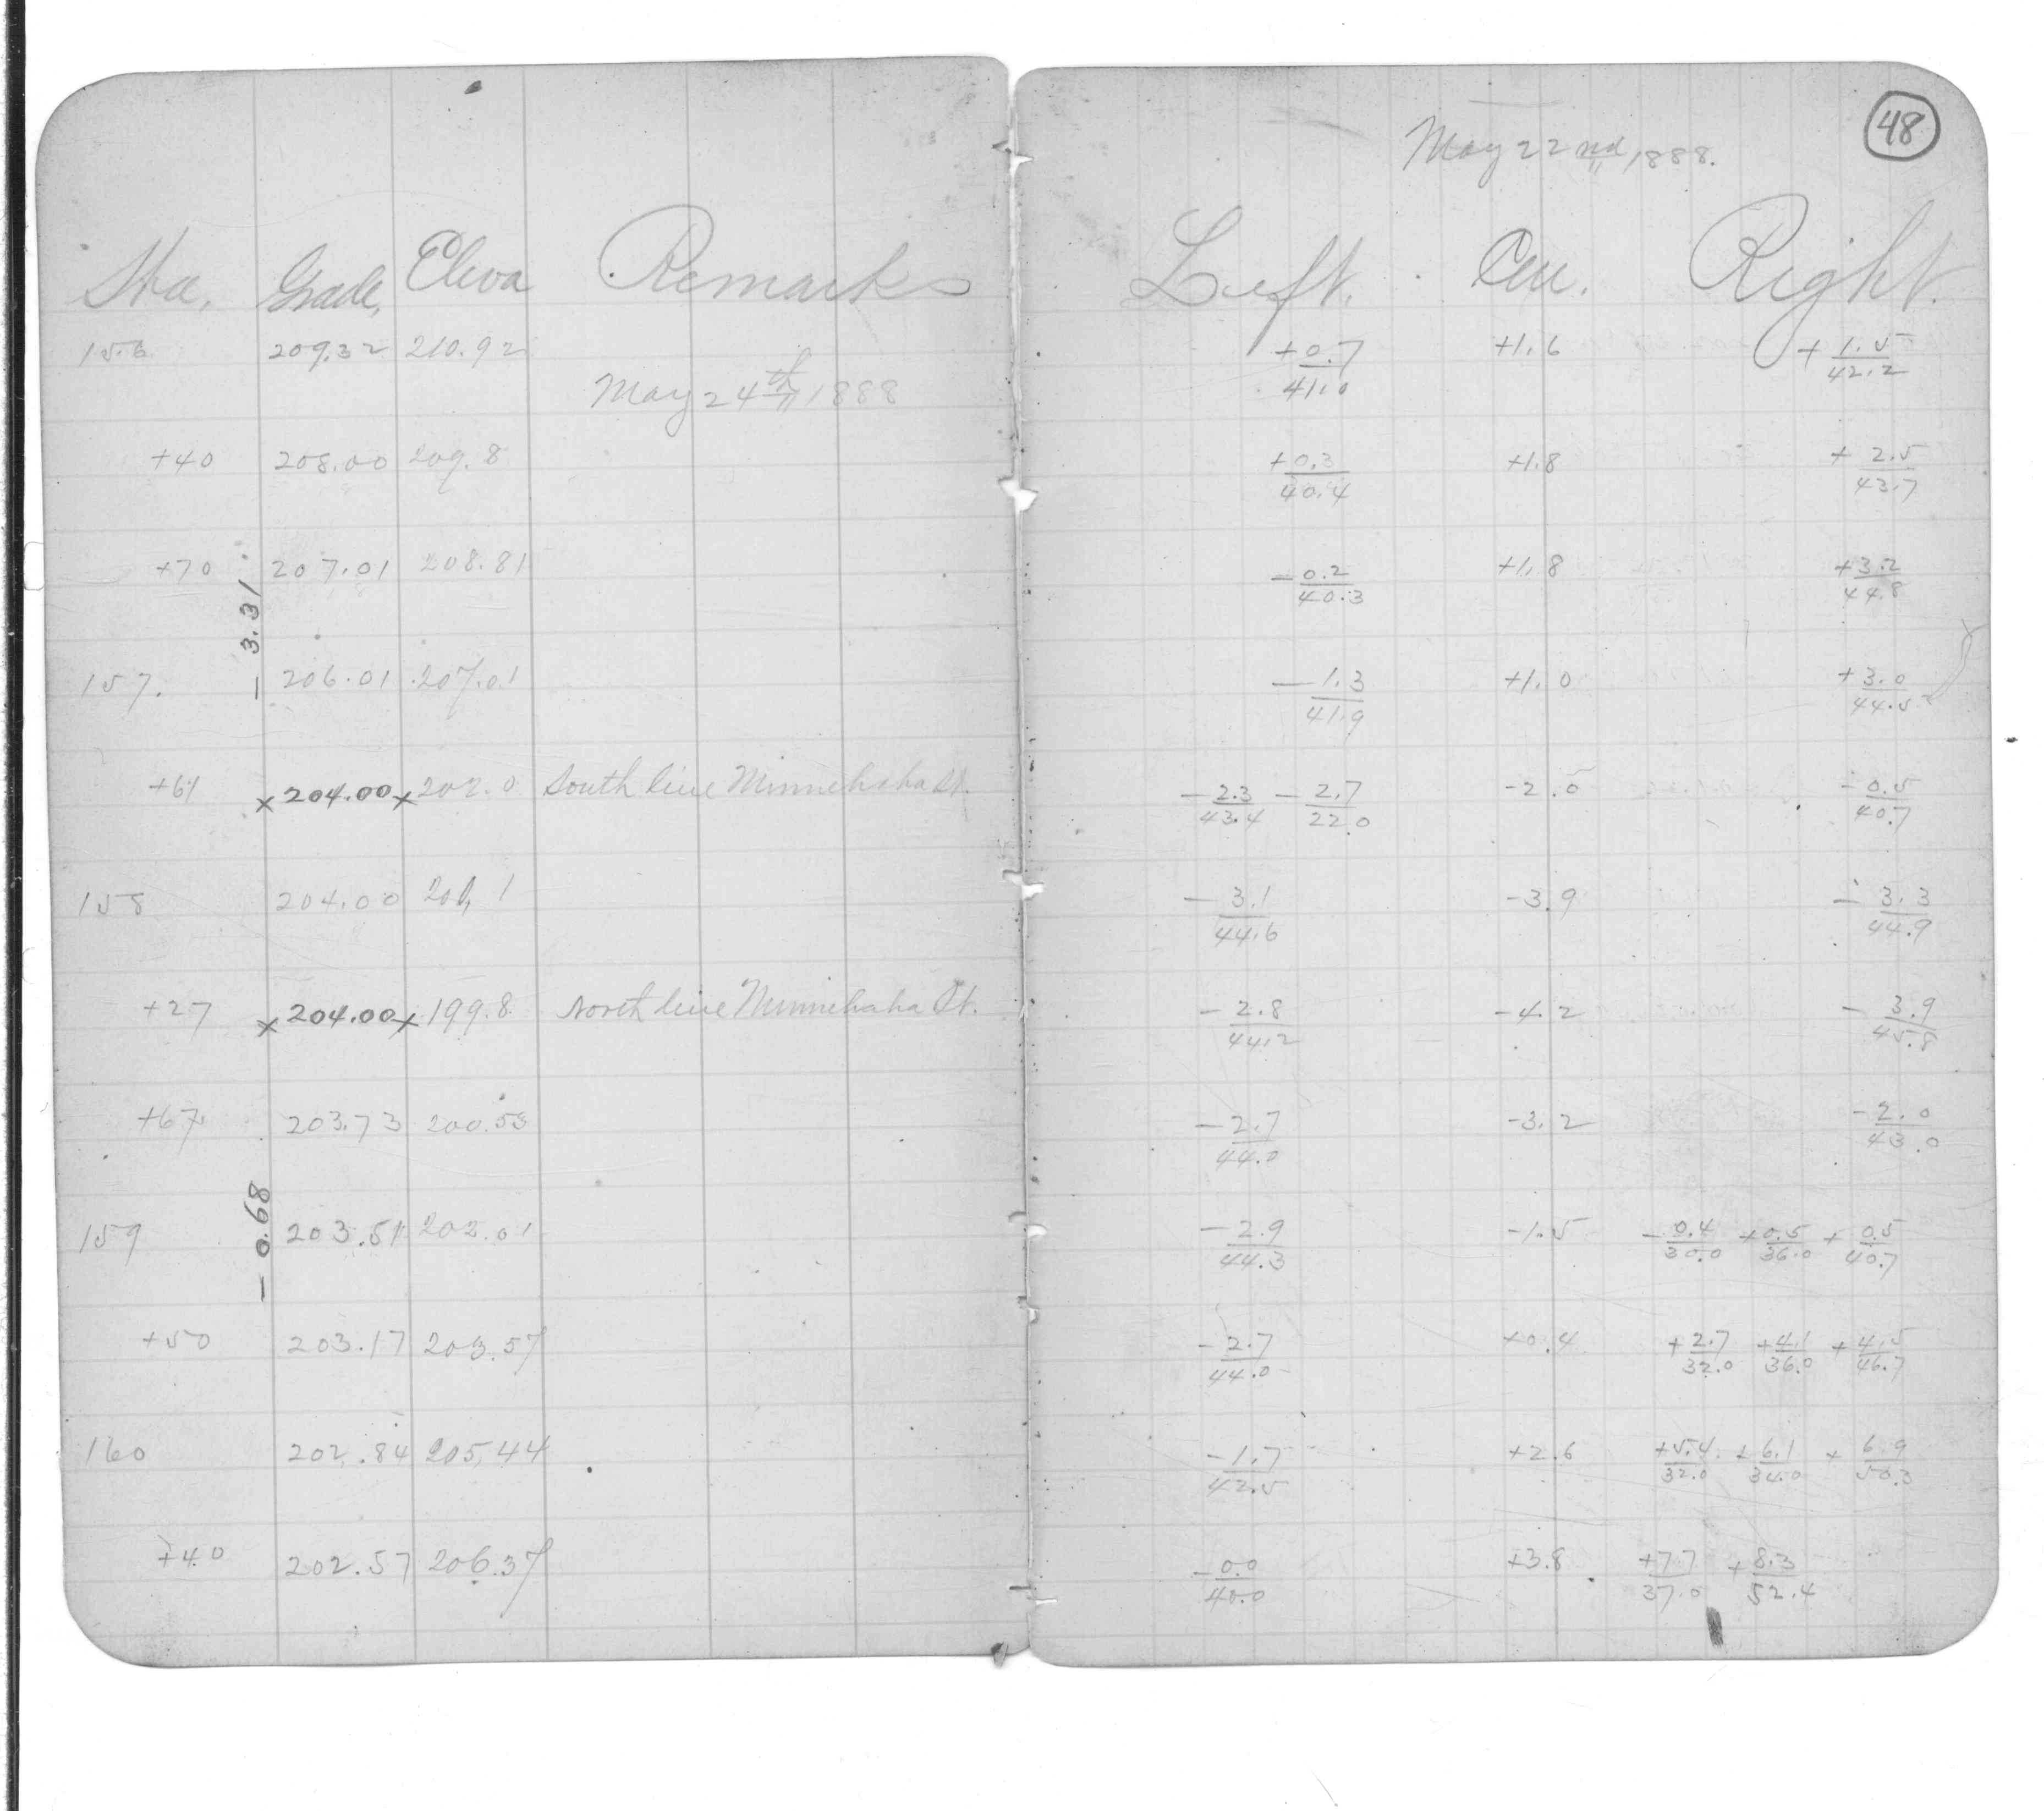 Sta. Grade, Eleva Remarks
156 209.32 210.92
May 24th 1888
+40 208.00 209.8
+70 207.01 208.81
- 3.31
157. 206.01 207.01
+61 x 204.00 x 202.0 South line Minnehaha St.
158 204.00 200.1
+27 x 204.00 x 199.8 North line Minnehaha St.
+67 203.73 200.53
- 0.68
159 203.51 202.01
+50 203.17 203.57
160 202.84 205.44
+40 202.57 206.37
48
May 22nd, 1888.
Left. Cen. Right.
+0.7/41.0 +1.6 +1.5/42.2
+0.3/40.4 +1.8 +2.5/43.7
-0.2/40.3 +1.8 +3.2/44.8
-1.3/41.9 +1.0 +3.0/44.5
-2.3/43.4 -2.7/22.0 -2.0 -0.5/40.7
-3.1/44.6 -3.9 -3.3/44.9
-2.8/44.2 -4.2 -3.9/45.8
-2.7/44.0 -3.2 -2.0/43.0
-2.9/44.3 -1.5 -0.4/30.0 +0.5/36.0 +0.5/40.7
-2.7/44.0 +0.4 +2.7/32.0 +4.1/36.0 +4.5/46.7
-1.7/42.5 +2.6 +5.4/32.0 +6.1/34.0 +6.9/50.3
-0.0/40.0 +3.8 +7.7/37.0 +8.3/52.4